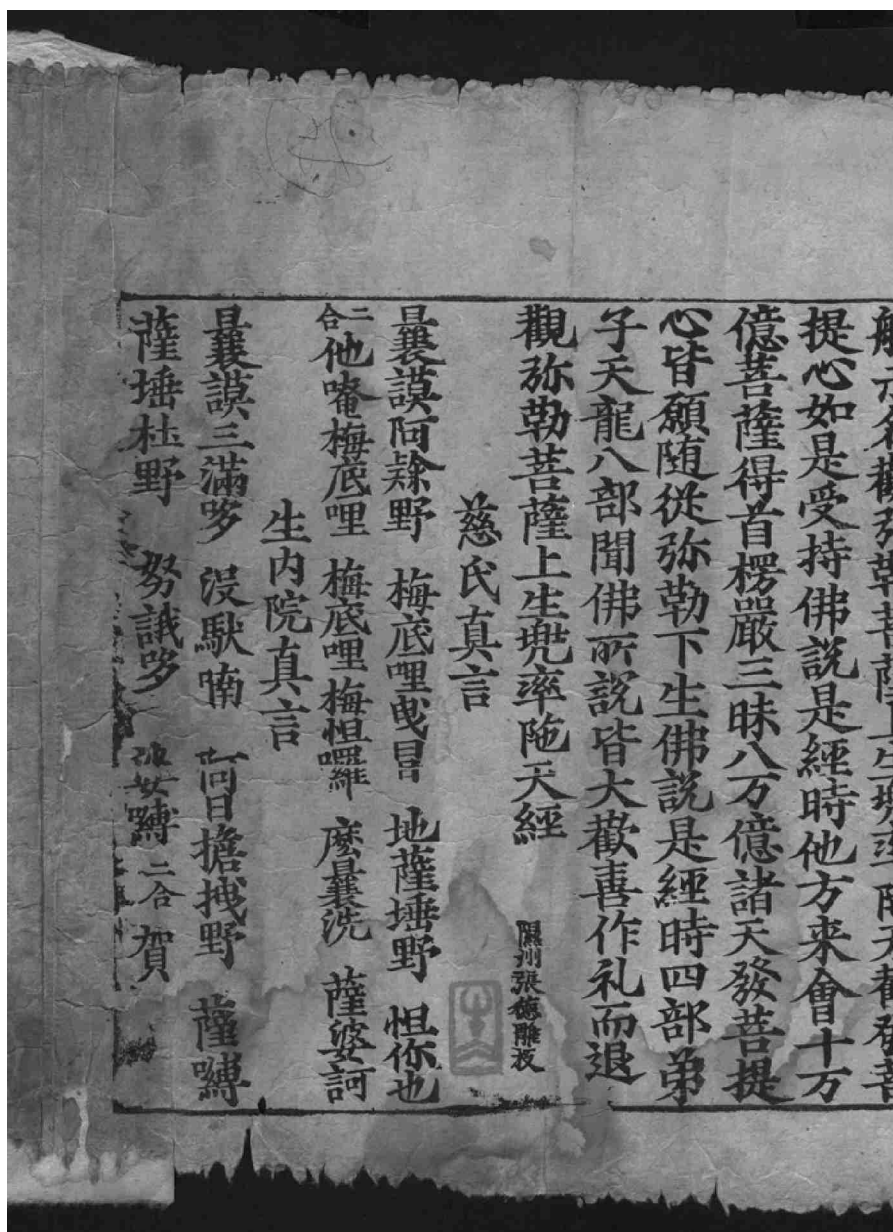 提心如是受持佛說是經時他方来會十万
億菩薩得首楞嚴三昧八万億諸天發菩提
心皆願随從弥勒下生佛說是經時四部弟
子天龍八部聞佛所說皆大歡喜作礼而退
觀弥勒菩薩上生兜率陁天經
隰州張德雕板
慈氏真言
曩謨阿 野 梅底哩曵冒 地薩埵野 怛你也
二合他唵梅底哩 梅底哩梅怛囉 麼曩洗 薩婆訶
生内院真言
曩謨三滿哆 没馱喃 擔拽野 薩嚩
薩埵 野 努誐哆 嚩二合賀